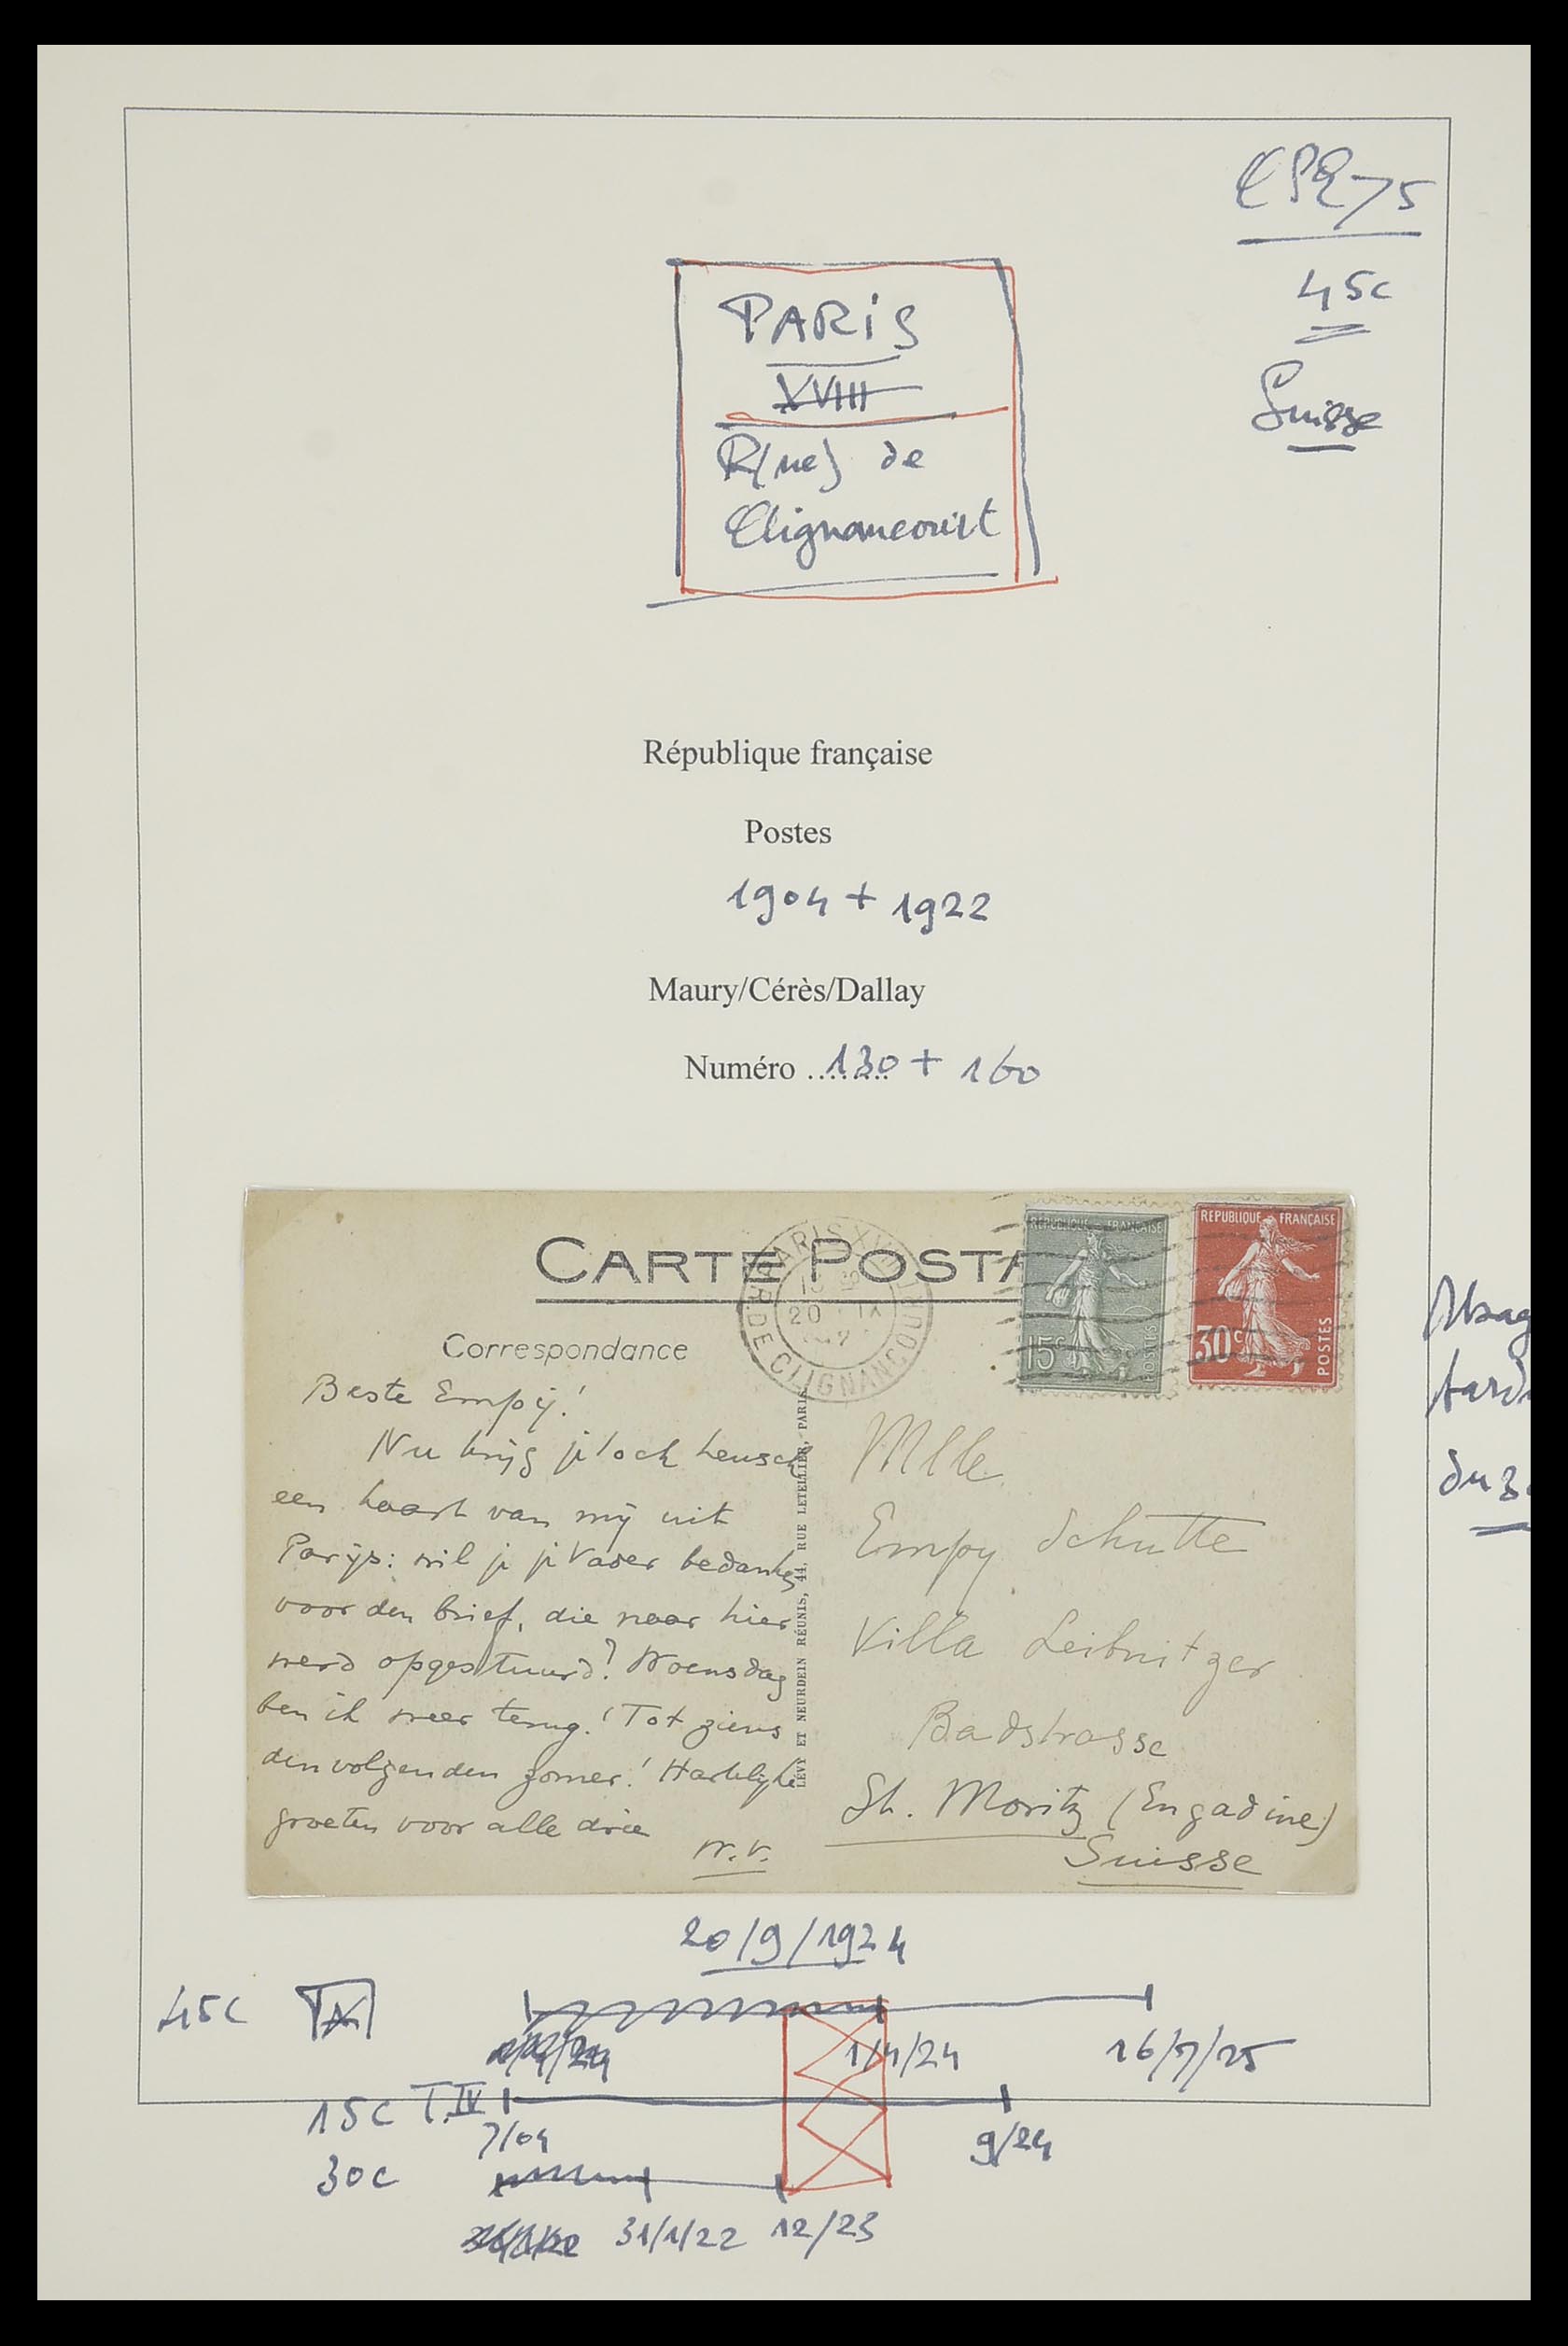 CPE75
45c
Suisse
PARiS
XVIII
R(ue) de
Clignancourt
République française
Postes
1904 + 1922
Maury/Cérès/Dallay
Numéro ........ 130 + 160
CARTE POSTA
Correspondance
PARIS XVIII
R. DE CLIGNANCOURT
20 IX
REPUBLIQUE FRANÇAISE
15c
POSTES
REPUBLIQUE FRANÇAISE
30c
POSTES
Beste Empy!
Nu krijg je toch heusch
een kaart van mij uit
Parijs: wil je je Vader bedanken
voor den brief, die naar hier
werd opgestuurd? Woensdag
ben ik weer terug! Tot ziens
den volgenden zomer! Hartelijke
groeten voor alle drie
W.V.
LÉVY ET NEURDEIN RÉUNIS, 44, RUE LETELLIER, PARIS
Mlle
Empy Schutte
Villa Leibnitzer
Badstrasse
St. Moritz (Engadine)
Suisse
Usag
tardi
du 3
20/9/1924
45c
1/4/24
16/7/25
15c T.IV
7/04
9/24
30c
31/1/22
12/23